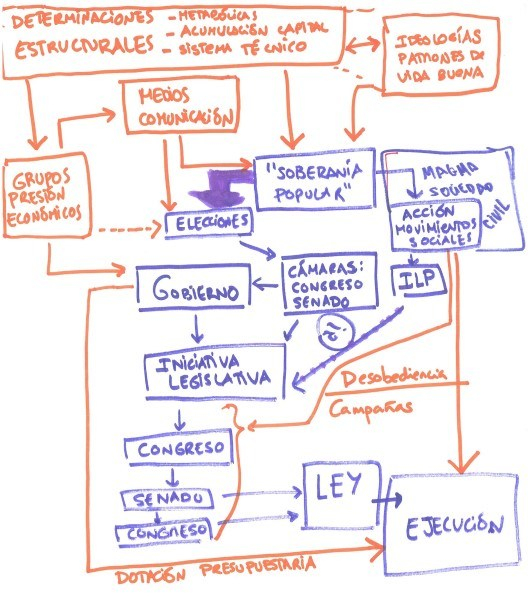 DETERMINACIONES
ESTRUCTURALES
- METABÓLICAS
- ACUMULACIÓN CAPITAL
- SISTEMA TÉCNICO
IDEOLOGÍAS
PATRONES DE
VIDA BUENA
MEDIOS
COMUNICACIÓN
GRUPOS
PRESIÓN
ECONÓMICOS
"SOBERANÍA
POPULAR"
MAGMA
SOCIEDAD
CIVIL
ACCIÓN
MOVIMIENTOS
SOCIALES
ELECCIONES
GOBIERNO
CÁMARAS:
CONGRESO
SENADO
ILP
INICIATIVA
LEGISLATIVA
Desobediencia
Campañas
CONGRESO
SENADO
CONGRESO
LEY
EJECUCIÓN
DOTACIÓN PRESUPUESTARIA